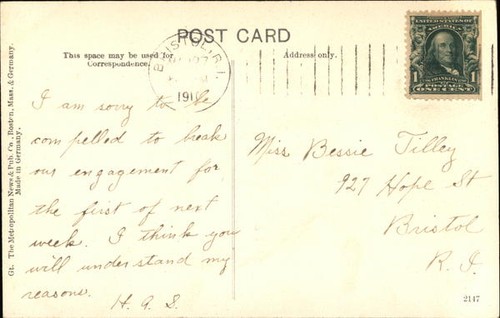 POST CARD
This space may be used for
Correspondence.
Address only.
BRISTOL, R.I.
191
UNITED STATES OF
AMERICA
1 1
FRANKLIN
POSTAGE
ONE CENT
I am sorry to be
compelled to break
our engagement for
the first of next
week. I think you
will understand my
reasons.
H. A. S.
Miss Bessie Tilley
927 Hope St
Bristol
R. I.
G1. The Metropolitan News & Pub. Co., Boston, Mass. & Germany.
Made in Germany.
2147